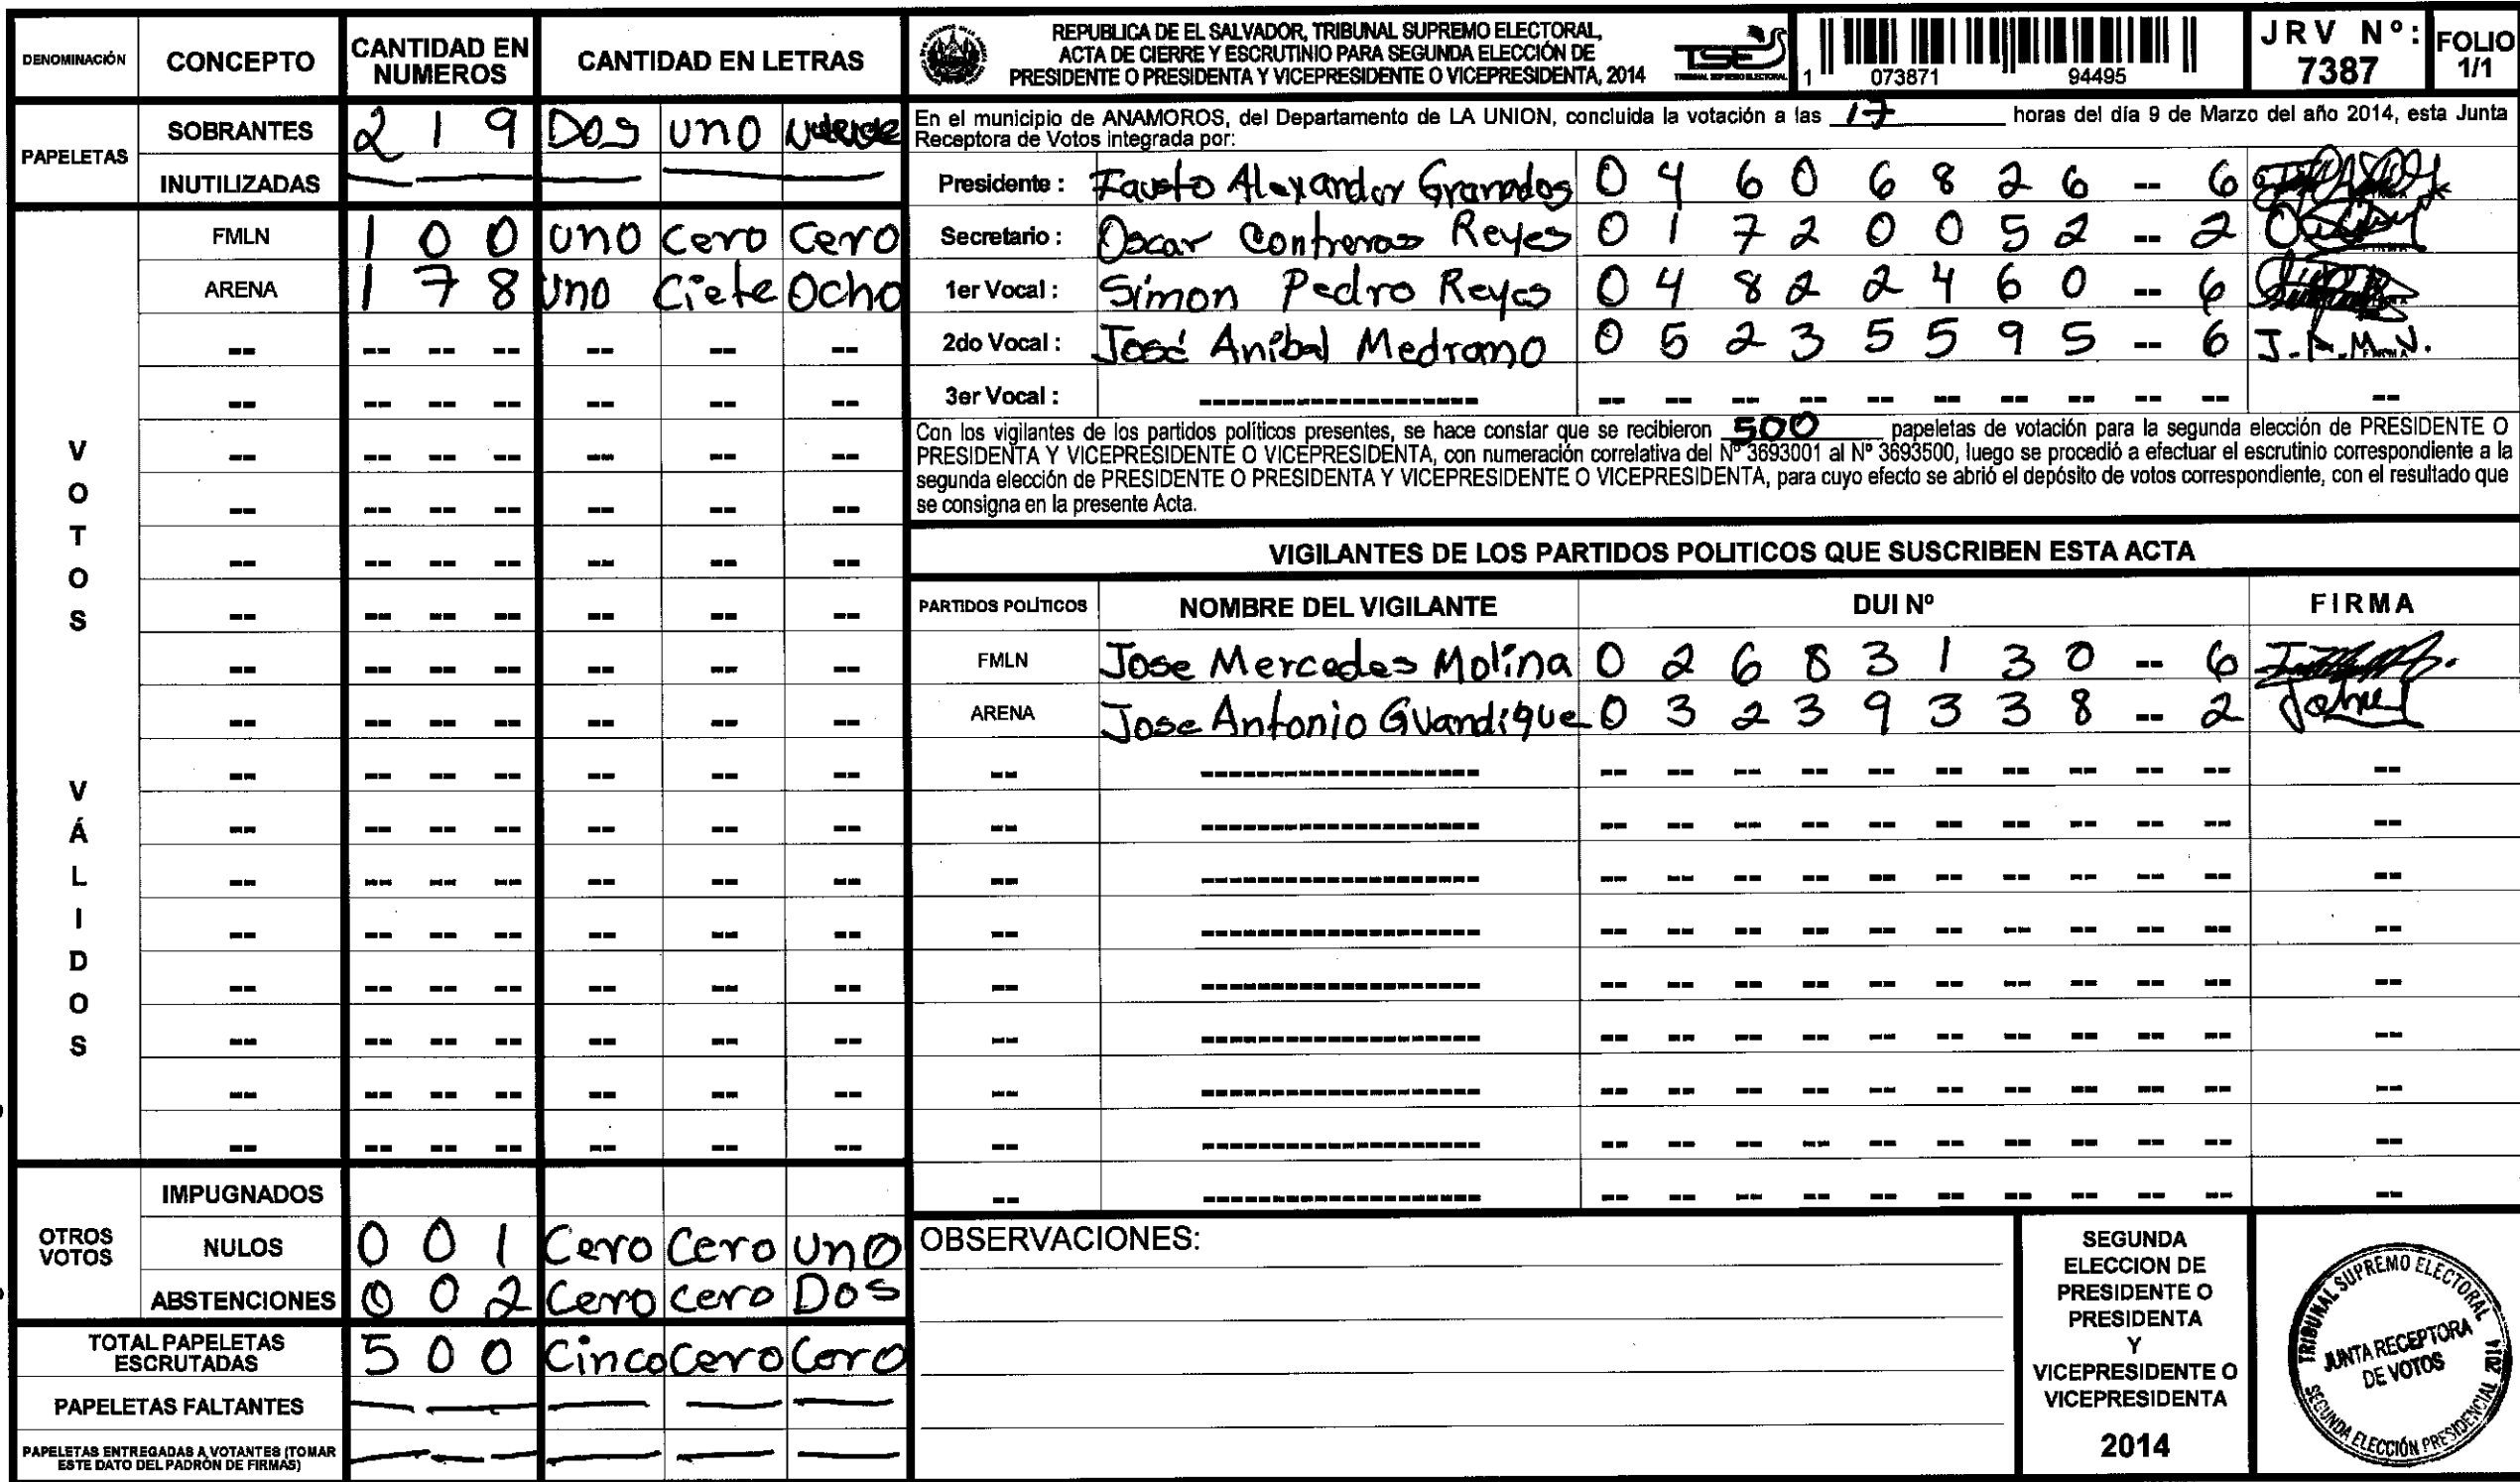 DENOMINACIÓN CONCEPTO CANTIDAD EN NUMEROS CANTIDAD EN LETRAS
PAPELETAS
SOBRANTES 2 1 9 Dos uno
INUTILIZADAS — — — — — —
VOTOS VÁLIDOS
FMLN 1 0 0 uno Cero Cero
ARENA 1 7 8 Uno Ciete Ocho
OTROS VOTOS
IMPUGNADOS
NULOS 0 0 1 Cero Cero Uno
ABSTENCIONES 0 0 2 Cero cero Dos
TOTAL PAPELETAS ESCRUTADAS 5 0 0 Cinco Cero Cero
PAPELETAS FALTANTES — — — — — —
PAPELETAS ENTREGADAS A VOTANTES (TOMAR ESTE DATO DEL PADRÓN DE FIRMAS) — — — — — —
REPUBLICA DE EL SALVADOR, TRIBUNAL SUPREMO ELECTORAL,
ACTA DE CIERRE Y ESCRUTINIO PARA SEGUNDA ELECCIÓN DE
PRESIDENTE O PRESIDENTA Y VICEPRESIDENTE O VICEPRESIDENTA, 2014
TSE
TRIBUNAL SUPREMO ELECTORAL
1 073871 94495
JRV Nº: 7387
FOLIO 1/1
En el municipio de ANAMOROS, del Departamento de LA UNION, concluida la votación a las 17 horas del día 9 de Marzo del año 2014, esta Junta
Receptora de Votos integrada por:
Presidente : Fausto Alexander Granados 0 4 6 0 6 8 2 6 -- 6
Secretario : Oscar Contreras Reyes 0 1 7 2 0 0 5 2 -- 2
1er Vocal : Simon Pedro Reyes 0 4 8 2 2 4 6 0 -- 6
2do Vocal : José Anibal Medrano 0 5 2 3 5 5 9 5 -- 6 J.A.M.V.
3er Vocal :
Con los vigilantes de los partidos políticos presentes, se hace constar que se recibieron 500 papeletas de votación para la segunda elección de PRESIDENTE O
PRESIDENTA Y VICEPRESIDENTE O VICEPRESIDENTA, con numeración correlativa del Nº 3693001 al Nº 3693500, luego se procedió a efectuar el escrutinio correspondiente a la
segunda elección de PRESIDENTE O PRESIDENTA Y VICEPRESIDENTE O VICEPRESIDENTA, para cuyo efecto se abrió el depósito de votos correspondiente, con el resultado que
se consigna en la presente Acta.
VIGILANTES DE LOS PARTIDOS POLITICOS QUE SUSCRIBEN ESTA ACTA
PARTIDOS POLÍTICOS NOMBRE DEL VIGILANTE DUI Nº FIRMA
FMLN Jose Mercedes Molina 0 2 6 8 3 1 3 0 -- 6
ARENA Jose Antonio Guandique 0 3 2 3 9 3 3 8 -- 2
OBSERVACIONES:
SEGUNDA
ELECCION DE
PRESIDENTE O
PRESIDENTA
Y
VICEPRESIDENTE O
VICEPRESIDENTA
2014
TRIBUNAL SUPREMO ELECTORAL
JUNTA RECEPTORA
DE VOTOS
SEGUNDA ELECCIÓN PRESIDENCIAL 2014